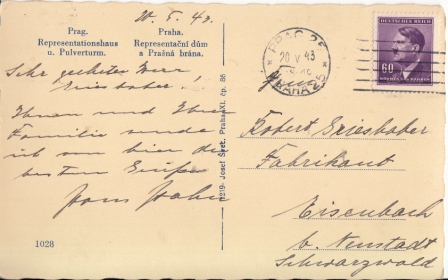 20. 5. 43.
Prag.
Representationshaus
u. Pulverturm.
Praha.
Representační dům
a Prašná brána.
Sehr geehrter Herr
Grieshaber!
Ihnen und Ihrer
Familie sende
ich von hier die
besten Grüße
1028
1219. Josef Švec, Praha XI. čp. 86
PRAG 25
20 V 43
PRAHA 25
DEUTSCHES REICH
60
Robert Grieshaber
Fabrikant
Eisenbach
b. Neustadt
Schwarzwald